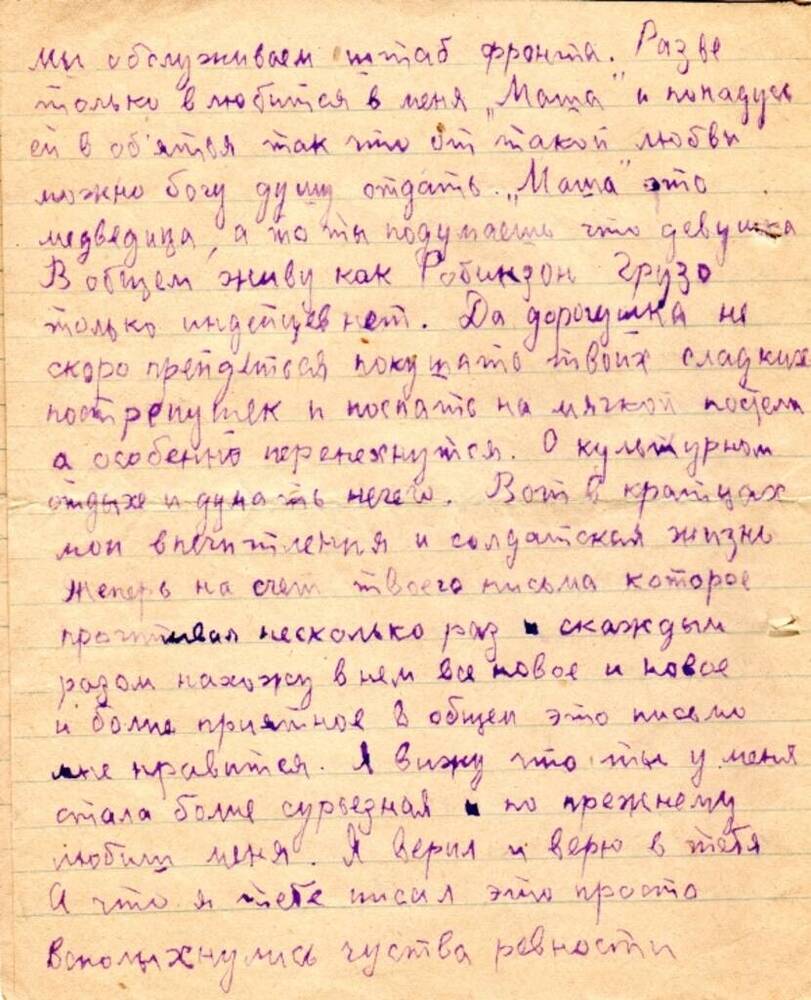 мы обслуживаем штаб фронта. Разве
только влюбится в меня „Маша" и попадусь
ей в об'ятья так что от такой любви
можно богу душу отдать. „Маша" это
медведица, а то ты подумаешь что девушка
В общем живу как Робинзон Грузо
только индейцев нет. Да дорогушка не
скоро прейдеться покушать твоих сладких
пострепушек и поспать на мягкой постели
а особенно перенехнутся. О культурном
отдыхе и думать нечего. Вот в кратцах
мои впечитления и солдатская жизнь
Теперь на счет твоего письма которое
прочитывал несколько раз и скаждым
разом нахожу в нем все новое и новое
и более приятное в общем это письмо
мне нравится. Я вижу что ты у меня
стала более сурьезная и по прежнему
любиш меня. Я верил и верю в тебя
А что я тебе писал это просто
всполыхнулись чуства ревности